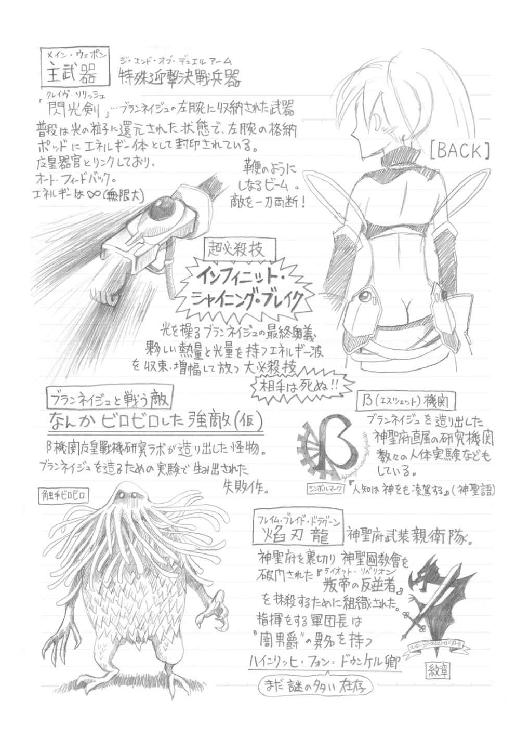 メイン・ウェポン
主武器
ジ・エンド・オブ・デュエルアーム
特殊迎撃決戦兵器
クレイヴ・ソリッシュ
「閃光剣」…ブランネイジュの左腕に収納された武器
普段は光の粒子に還元された状態で、左腕の格納
ポッドにエネルギー体として封印されている。
虚皇器官とリンクしており、
オートフィードバック。
エネルギーは∞(無限大)
鞭のように
しなるビーム。
敵を一刀両断!
[BACK]
超必殺技
インフィニット・
シャイニング・ブレイク
光を操るブランネイジュの最終奥義
夥しい熱量と光量を持つエネルギー波
を収束・増幅して放つ大必殺技
相手は死ぬ!!
ブランネイジュと戦う敵
なんかビロビロした強敵(仮)
ß機関虚皇戦機研究ラボが造り出した怪物。
ブランネイジュを造るための実験で生み出された
失敗作。
触手ビロビロ
ß(エスツェット)機関
ß
ブランネイジュを造り出した
神聖府直属の研究機関
数々の人体実験なども
している。
シンボルマーク
『人知は神をも凌駕する』(神聖語)
フレイム・ブレイド・ドラグーン
焔刃龍
神聖府武装親衛隊。
神聖府を裏切り神聖國教会を
破門された『叛帝の反逆者』
を抹殺するために組織された。
指揮をする軍団長は
"闇男爵"の異名を持つ
ハインリッヒ・フォン・ドゥンケル卿
まだ謎の多い存在
紋章